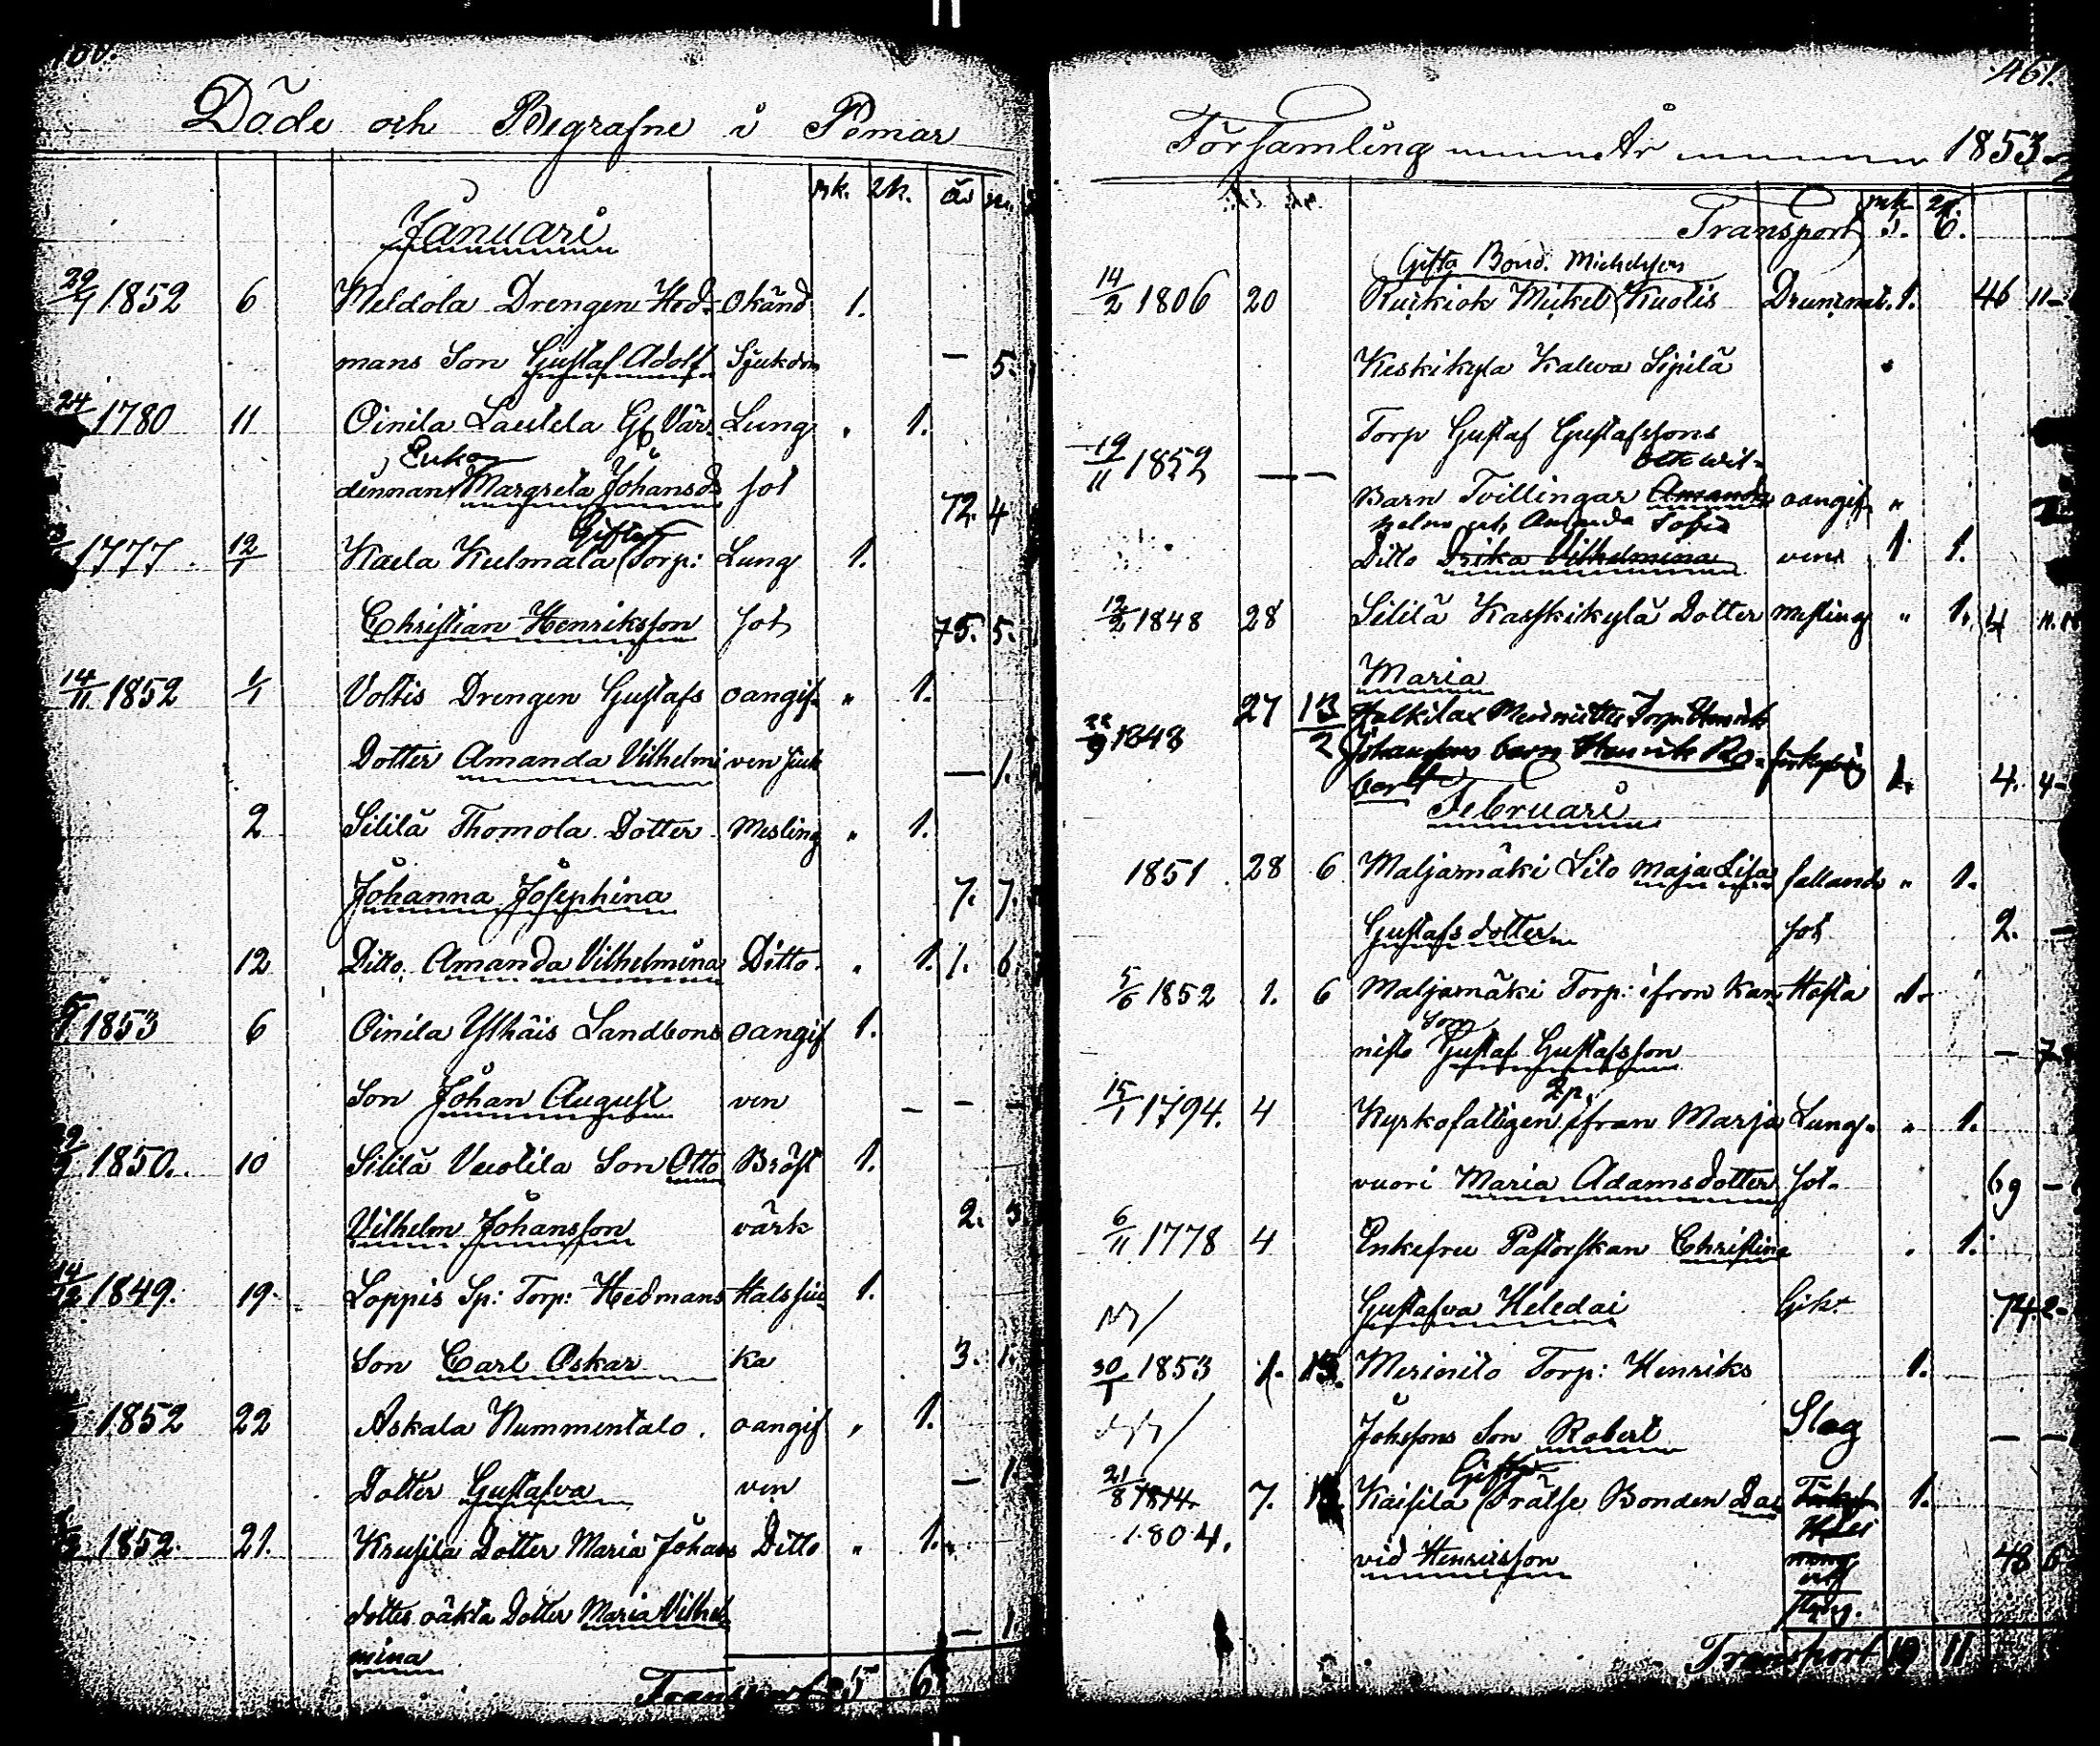 Döde och Begrafne i Pemar
mk. qk. år m.
Januari
29/7 1852 6 Meldola Drengen Hed- Okänd 1.
mans Son Gustaf Adolf Sjukdom — 5.
24 1780 11 Oinila Lautela Gf. Vär- Lung 1.
Enka
dinnan Margreta Johansd. sot 72. 4
Giftor
1777. 12/1 Kaela Kulmala Torp: Lung 1.
Christian Henriksson sot 75. 5.
14/11 1852 1/1 Voltis Drengen Gustafs oangif- " 1.
Dotter Amanda Vilhelmi ven sjuk — 1.
2 Sililä Thomola Dotter Mesling " 1.
Johanna Josephina 7. 7.
12 Ditto. Amanda Vilhelmina Ditto. " 1. 1. 6.
5 1853 6 Oinila Ylhäis Landbons oangif 1.
Son Johan August ven — — —
1850. 10 Sililä Vuotila Son Otto Bröst 1.
Vilhelm Johansson värk 2. 3.
14/12 1849. 19. Loppis Sp: Torp: Hedmans Halssju 1.
Son Carl Oskar ka 3. 1.
1852 22 Askala Nummentalo. oangif " 1.
Dotter Gustafva ven — 1
1852. 21. Krusila Dotter Maria Johans Ditto " 1.
dotter oäkta Dotter Maria Vilhel
mina — 1.
Transport 5 6
461.
Församling År 1853.
mk qk.
Transport 5. 6.
Gifta Bond. Michelsson
14/2 1806 20 Ruskiok Mikel Kuolis Drunknat. 1. 46 11-
Keskikyla Kaleva Sipilä
Torp Gustaf Gustafssons
19/11 1852 — —
Barn Tvillingar Amanda oangif "
Amanda Sofia
Ditto Vilhelmina ven 1 1.
12/2 1848 28 Sililä Kasskikylä Dotter Mesling " 1. 4
Maria
1848 27 13/2 Torp Henrik
Johanssons barn Henrik Ro-
bert 1. 4. 4-
Februari
1851. 28 6 Maljamäki Sito Maja Lisa fallande " 1.
Gustafsdotter sot 2. —
5/6 1852 1. 6 Maljamäki Torp: ifrån Kan Hosta 1.
Son
nisto Gustaf Gustafsson — 7.
15/1 1794. 4 Kyrkofattigen ifrån Marja Lung- " 1.
vuori Maria Adamsdotter sot. 69 —
6/11 1778 4 Enkefru Pastorskan Christina 1.
Gustafva Heledai Gikt 74. 2-
30/1 1853 1. 13. Merinito Torp: Henriks 1.
Johssons Son Robert Slag — —
Gifte
21/8 1814. 7. Kaisila Frälse Bonden Da 1.
1804.
vid Henricsson 48 6
Transport 10 11